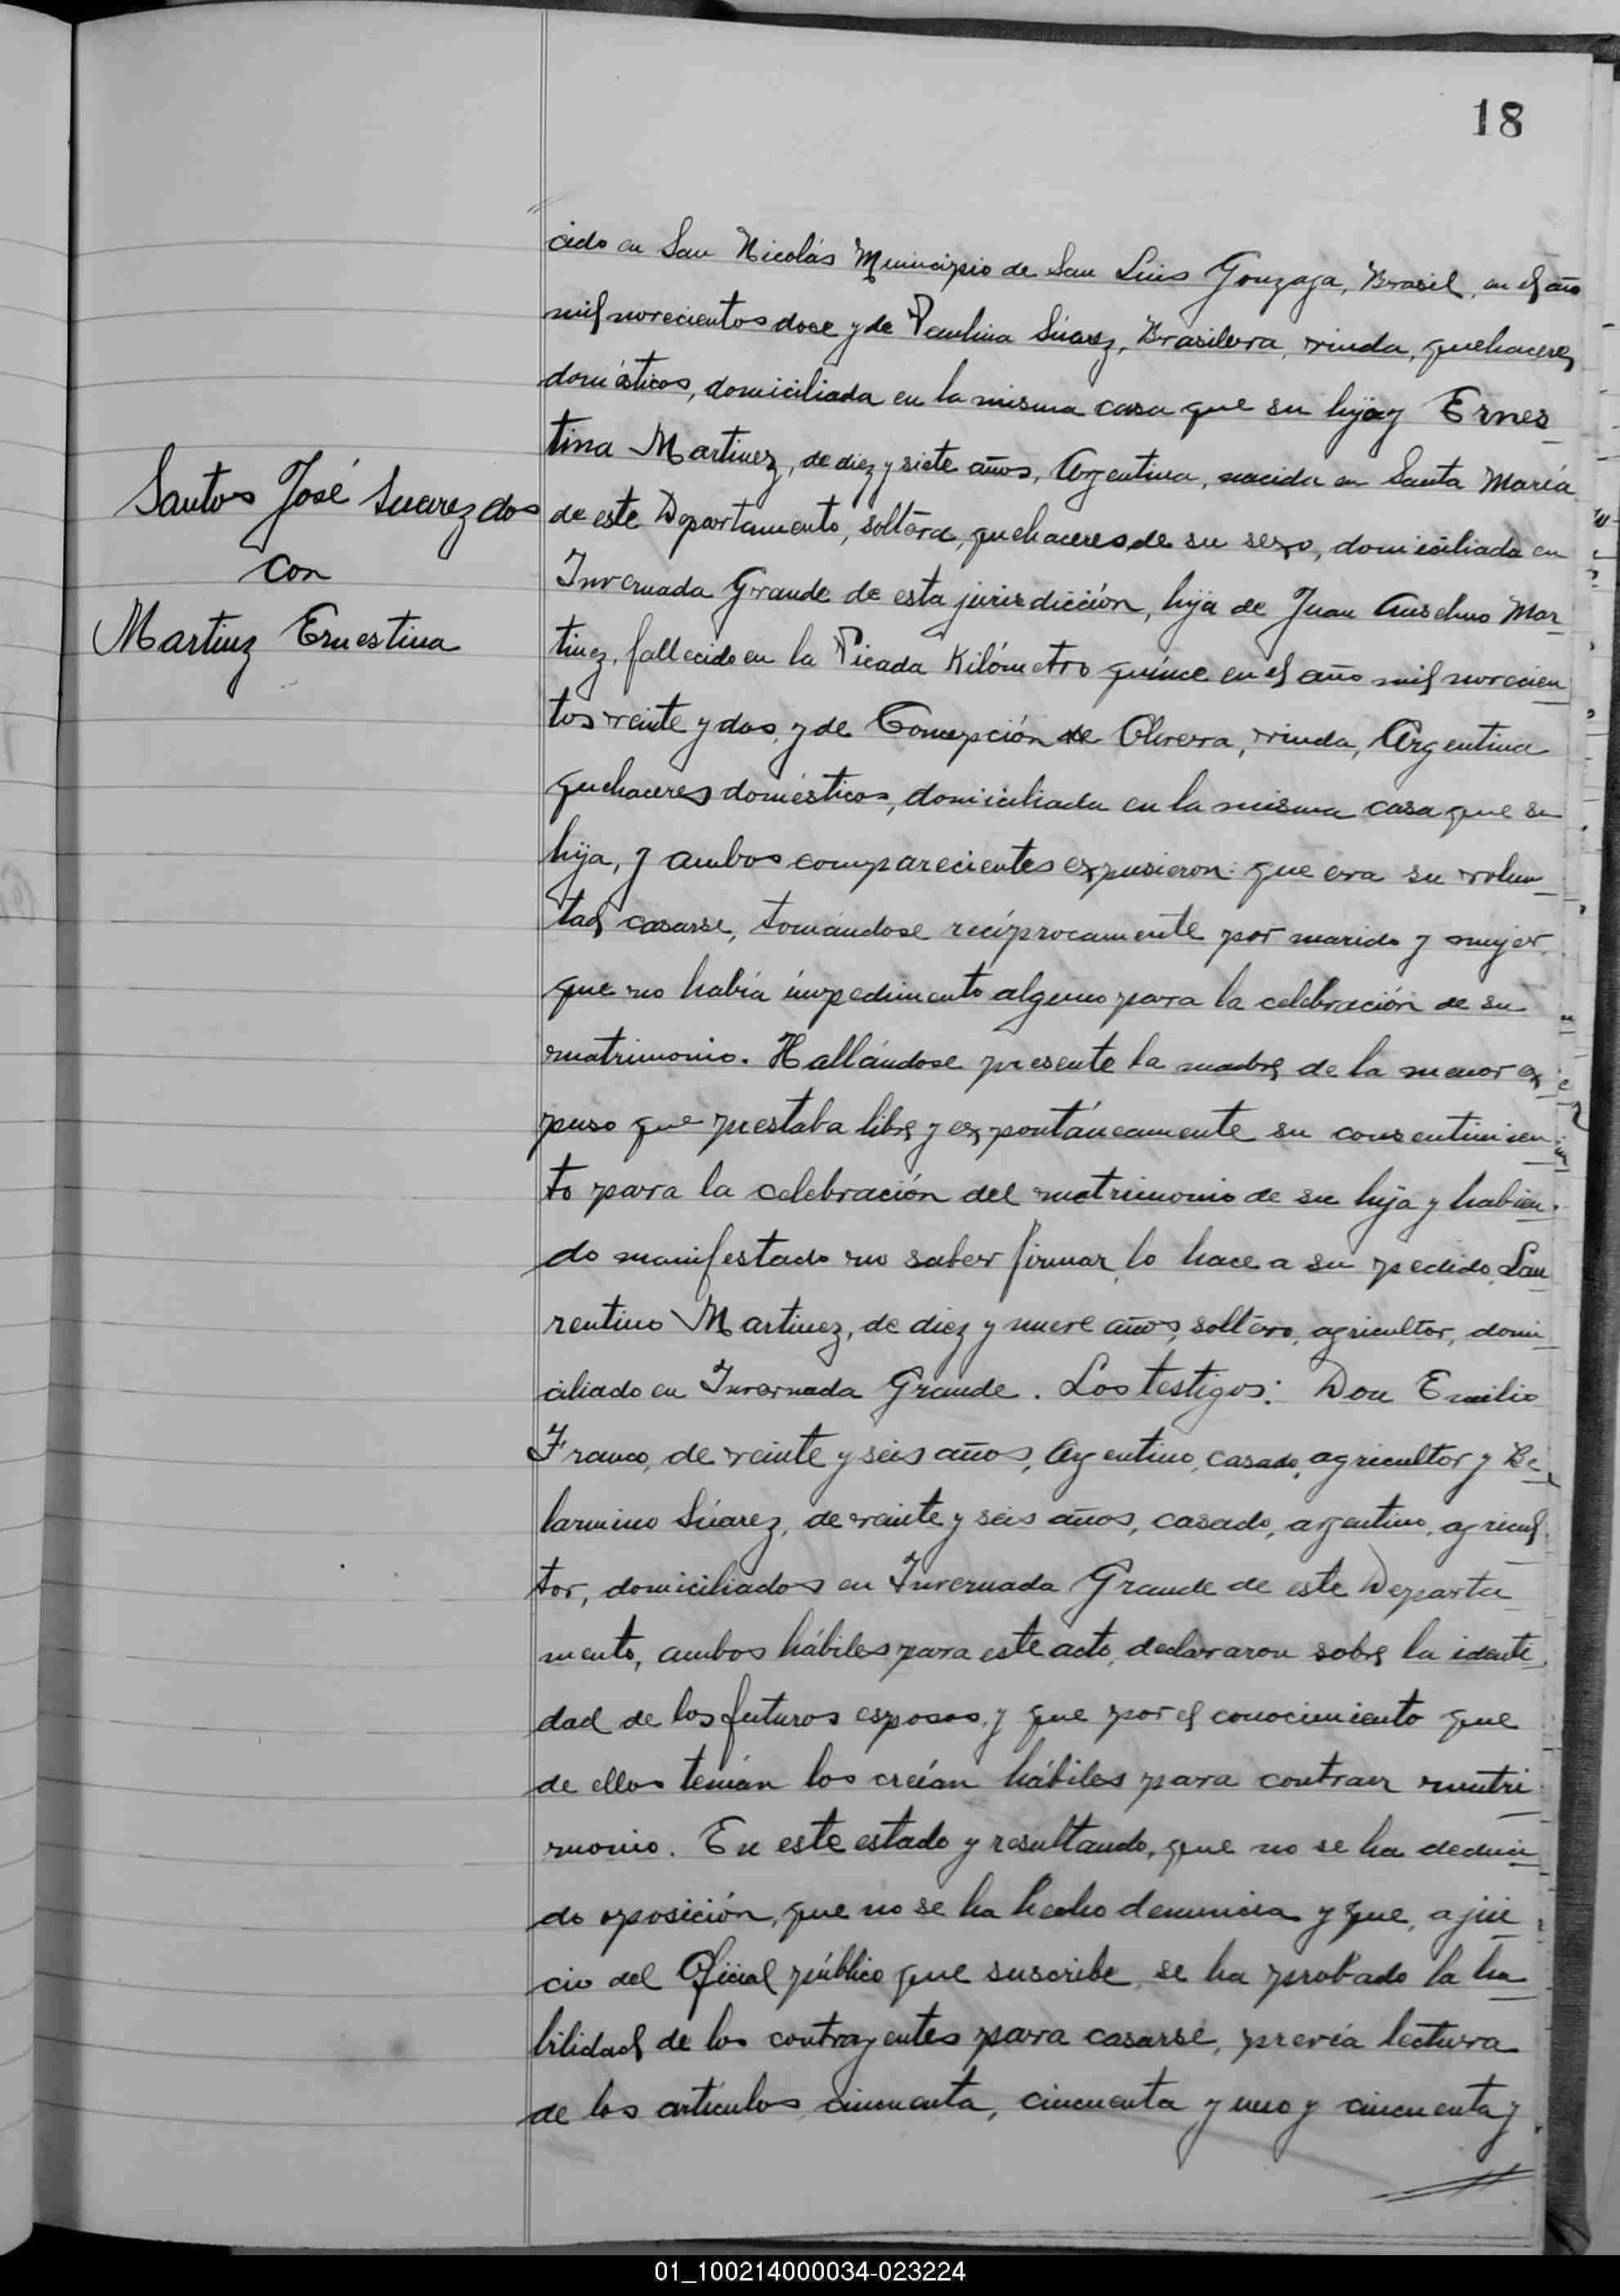 18
cido en San Nicolás Municipio de San Luis Gonzaga, Brasil, en el año
mil novecientos doce y de Paulina Súarez, Brasilera, viuda, quehaceres
domésticos, domiciliada en la misma casa que su hijo y Ernes-
tina Martinez, de diez y siete años, Argentina, nacida en Santa María
de este Departamento, soltera, quehaceres de su sexo, domiciliada en
Invernada Grande de esta jurisdicción, hija de Juan Anselmo Mar-
tinez, fallecido en la Picada Kilómetro quince en el año mil novecien
tos veinte y dos, y de Concepción de Olivera, viuda, Argentina
quehaceres domésticos, domiciliada en la misma casa que su
hija, y ambos comparecientes expusieron: que era su volun-
tad casarse, tomándose recíprocamente por marido y mujer,
que no había impedimento alguno para la celebración de su
matrimonio. Hallándose presente la madre de la menor ex-
puso que prestaba libre y expontáneamente su consentimien-
to para la celebración del matrimonio de su hija y habien-
do manifestado no saber firmar, lo hace a su pedido, Lau-
rentino Martinez, de diez y nueve años, soltero, agricultor, domi-
ciliado en Invernada Grande. Los testigos: Don Emilio
Franco, de veinte y seis años, Argentino, casado, agricultor y Be-
larmino Súarez, de veinte y seis años, casado, argentino, agricul-
tor, domiciliados en Invernada Grande de este Departa-
mento, ambos hábiles para este acto, declararon sobre la identi-
dad de los futuros esposos, y que por el conocimiento que
de ellos tenían los creían hábiles para contraer matri-
monio. En este estado y resultando, que no se ha deduci-
do oposición, que no se ha hecho denuncia y que, a jui-
cio del Oficial público que suscribe, se ha probado la ha-
bilidad de los contrayentes para casarse, previa lectura
de los artículos cincuenta, cincuenta y uno y cincuenta y
Santos José Suarez dos
con
Martinz Ernestina
01_100214000034-023224